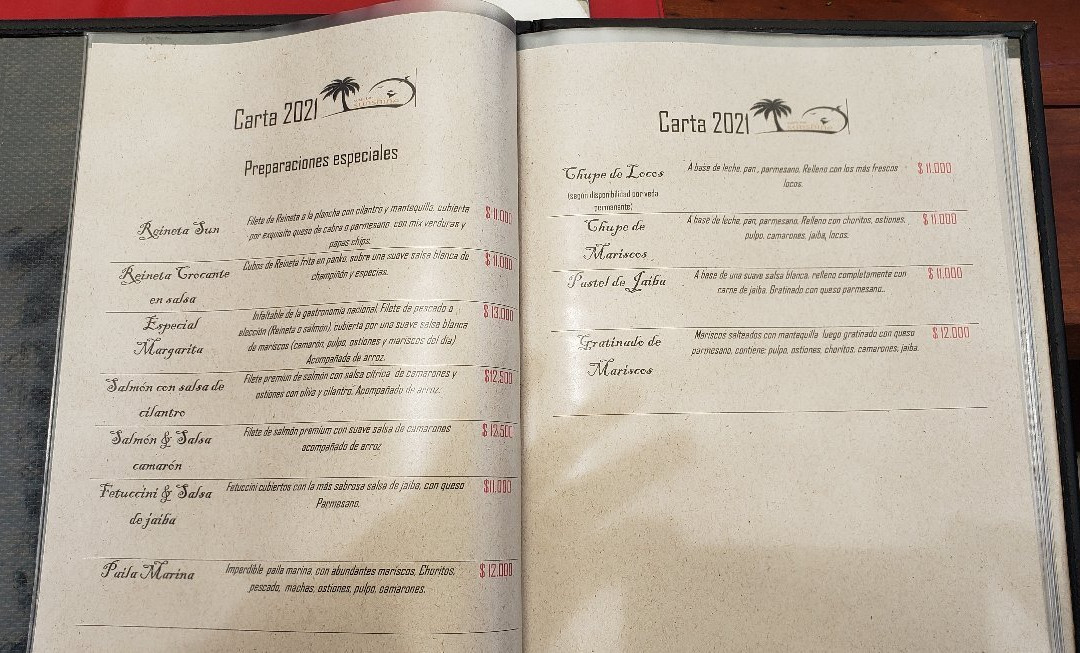 Carta 2021
sunshine
Preparaciones especiales
Reineta Sun
Filete de Reineta a la plancha con cilantro y mantequilla, cubierta
por exquisito queso de cabra o parmesano con mix verduras y
papas chips.
$ 11.000
Reineta Crocante
en salsa
Cubos de Reineta frita en panko, sobre una suave salsa blanca de
champiñón y especias.
$ 11.000
Especial
Margarita
Infaltable de la gastronomía nacional. Filete de pescado a
elección (Reineta o salmón), cubierta por una suave salsa blanca
de mariscos (camarón, pulpo, ostiones y mariscos del día)
Acompañada de arroz.
$ 13.000
Salmón con salsa de
cilantro
Filete premiun de salmón con salsa citrica de camarones y
ostiones con olivo y cilantro. Acompañado de arroz.
$12.500
Salmón & Salsa
camarón
Filete de salmón premium con suave salsa de camarones
acompañado de arroz
$ 12.500
Fetuccini & Salsa
de jaiba
Fetuccini cubiertos con la más sabrosa salsa de jaiba, con queso
Parmesano.
$11.000
Paila Marina
Imperdible paila marina, con abundantes mariscos, Choritos,
pescado, machas, ostiones, pulpo, camarones.
$ 12.000
Carta 2021
Chupe de Locos
(según disponibilidad por veda
permanente)
A base de leche, pan, parmesano. Relleno con los más frescos
locos.
$ 11.000
Chupe de
Mariscos
A base de leche, pan, parmesano. Relleno con choritos, ostiones,
pulpo, camarones, jaiba, locos.
$ 11.000
Pastel de Jaiba
A base de una suave salsa blanca, relleno completamente con
carne de jaiba. Gratinado con queso parmesano..
$ 11.000
Gratinado de
Mariscos
Mariscos salteados con mantequilla luego gratinado con queso
parmesano, contiene: pulpo, ostiones, choritos, camarones, jaiba.
$ 12.000